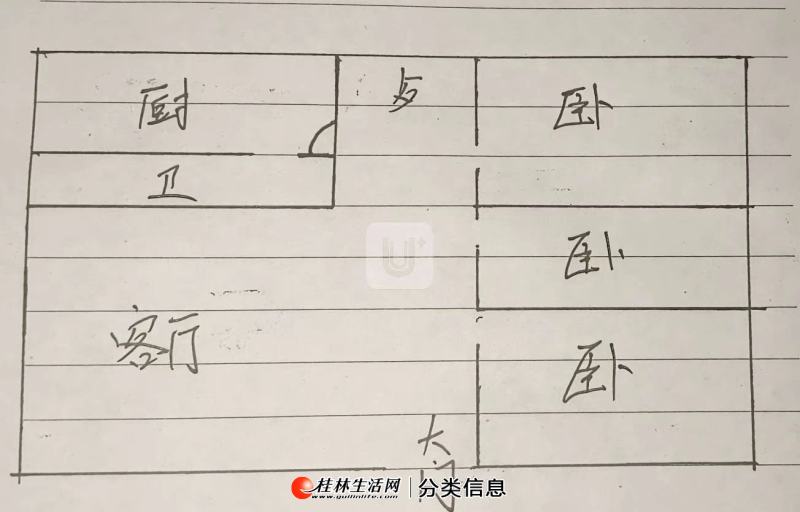 厨
卫
卧
卧
客厅
卧
大门
桂林生活网
www.guilinlife.com
分类信息
U+